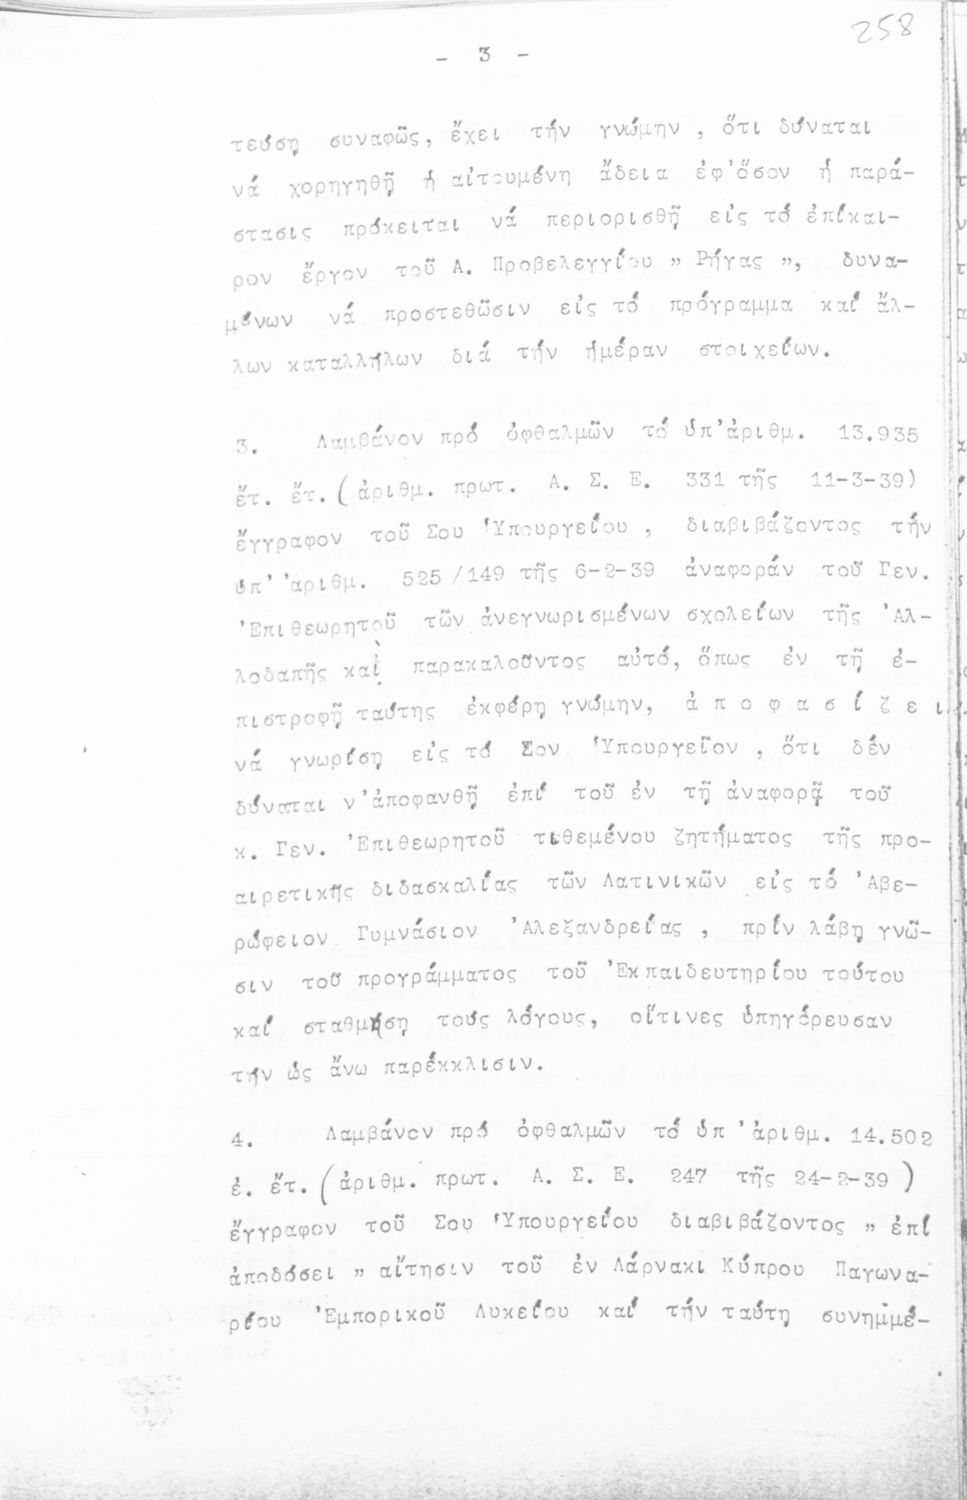 258
- 3 -
τεύση συναφῶς, ἔχει τήν γνώμην , ὅτι δύναται
νά χορηγηθῇ ἡ αἰτουμένη ἄδεια ἐφ'ὅσον ἡ παρά-
στασις πρόκειται νά περιορισθῇ εἰς τό ἐπίκαι-
ρον ἔργον τοῦ Α. Προβελεγγίου " Ρήγας ", δυνα-
μένων νά προστεθῶσιν εἰς τό πρόγραμμα καί ἄλ-
λων καταλλήλων διά τήν ἡμέραν στοιχείων.
3. Λαμβάνον πρό ὀφθαλμῶν τό ὑπ'ἀριθμ. 13.935
ἔτ. ἔτ. (ἀριθμ. πρωτ. Α. Σ. Ε. 331 τῆς 11-3-39)
ἔγγραφον τοῦ Σου Ὑπουργείου , διαβιβάζοντος τήν
ὑπ' ἀριθμ. 525/149 τῆς 6-2-39 ἀναφοράν τοῦ Γεν.
Ἐπιθεωρητοῦ τῶν ἀνεγνωρισμένων σχολείων τῆς Ἀλ-
λοδαπῆς καί παρακαλοῦντος αὐτό, ὅπως ἐν τῇ ἐ-
πιστροφῇ ταύτης ἐκφέρῃ γνώμην, ἀ π ο φ α σ ί ζ ε ι
νά γνωρίσῃ εἰς τό Σον Ὑπουργεῖον , ὅτι δέν
δύναται ν'ἀποφανθῇ ἐπί τοῦ ἐν τῇ ἀναφορᾷ τοῦ
κ. Γεν. Ἐπιθεωρητοῦ τιθεμένου ζητήματος τῆς προ-
αιρετικῆς διδασκαλίας τῶν Λατινικῶν εἰς τό Ἀβε-
ρώφειον Γυμνάσιον Ἀλεξανδρείας , πρίν λάβῃ γνῶ-
σιν τοῦ προγράμματος τοῦ Ἐκπαιδευτηρίου τούτου
καί σταθμίσῃ τούς λόγους, οἵτινες ὑπηγόρευσαν
τήν ὡς ἄνω παρέκκλισιν.
4. Λαμβάνον πρό ὀφθαλμῶν τό ὑπ 'ἀριθμ. 14.502
ἐ. ἔτ. (ἀριθμ. πρωτ. Α. Σ. Ε. 247 τῆς 24-2-39 )
ἔγγραφον τοῦ Σου Ὑπουργείου διαβιβάζοντος " ἐπί
ἀποδόσει " αἴτησιν τοῦ ἐν Λάρνακι Κύπρου Παγωνα-
ρίου Ἐμπορικοῦ Λυκείου καί τήν ταύτῃ συνημμέ-